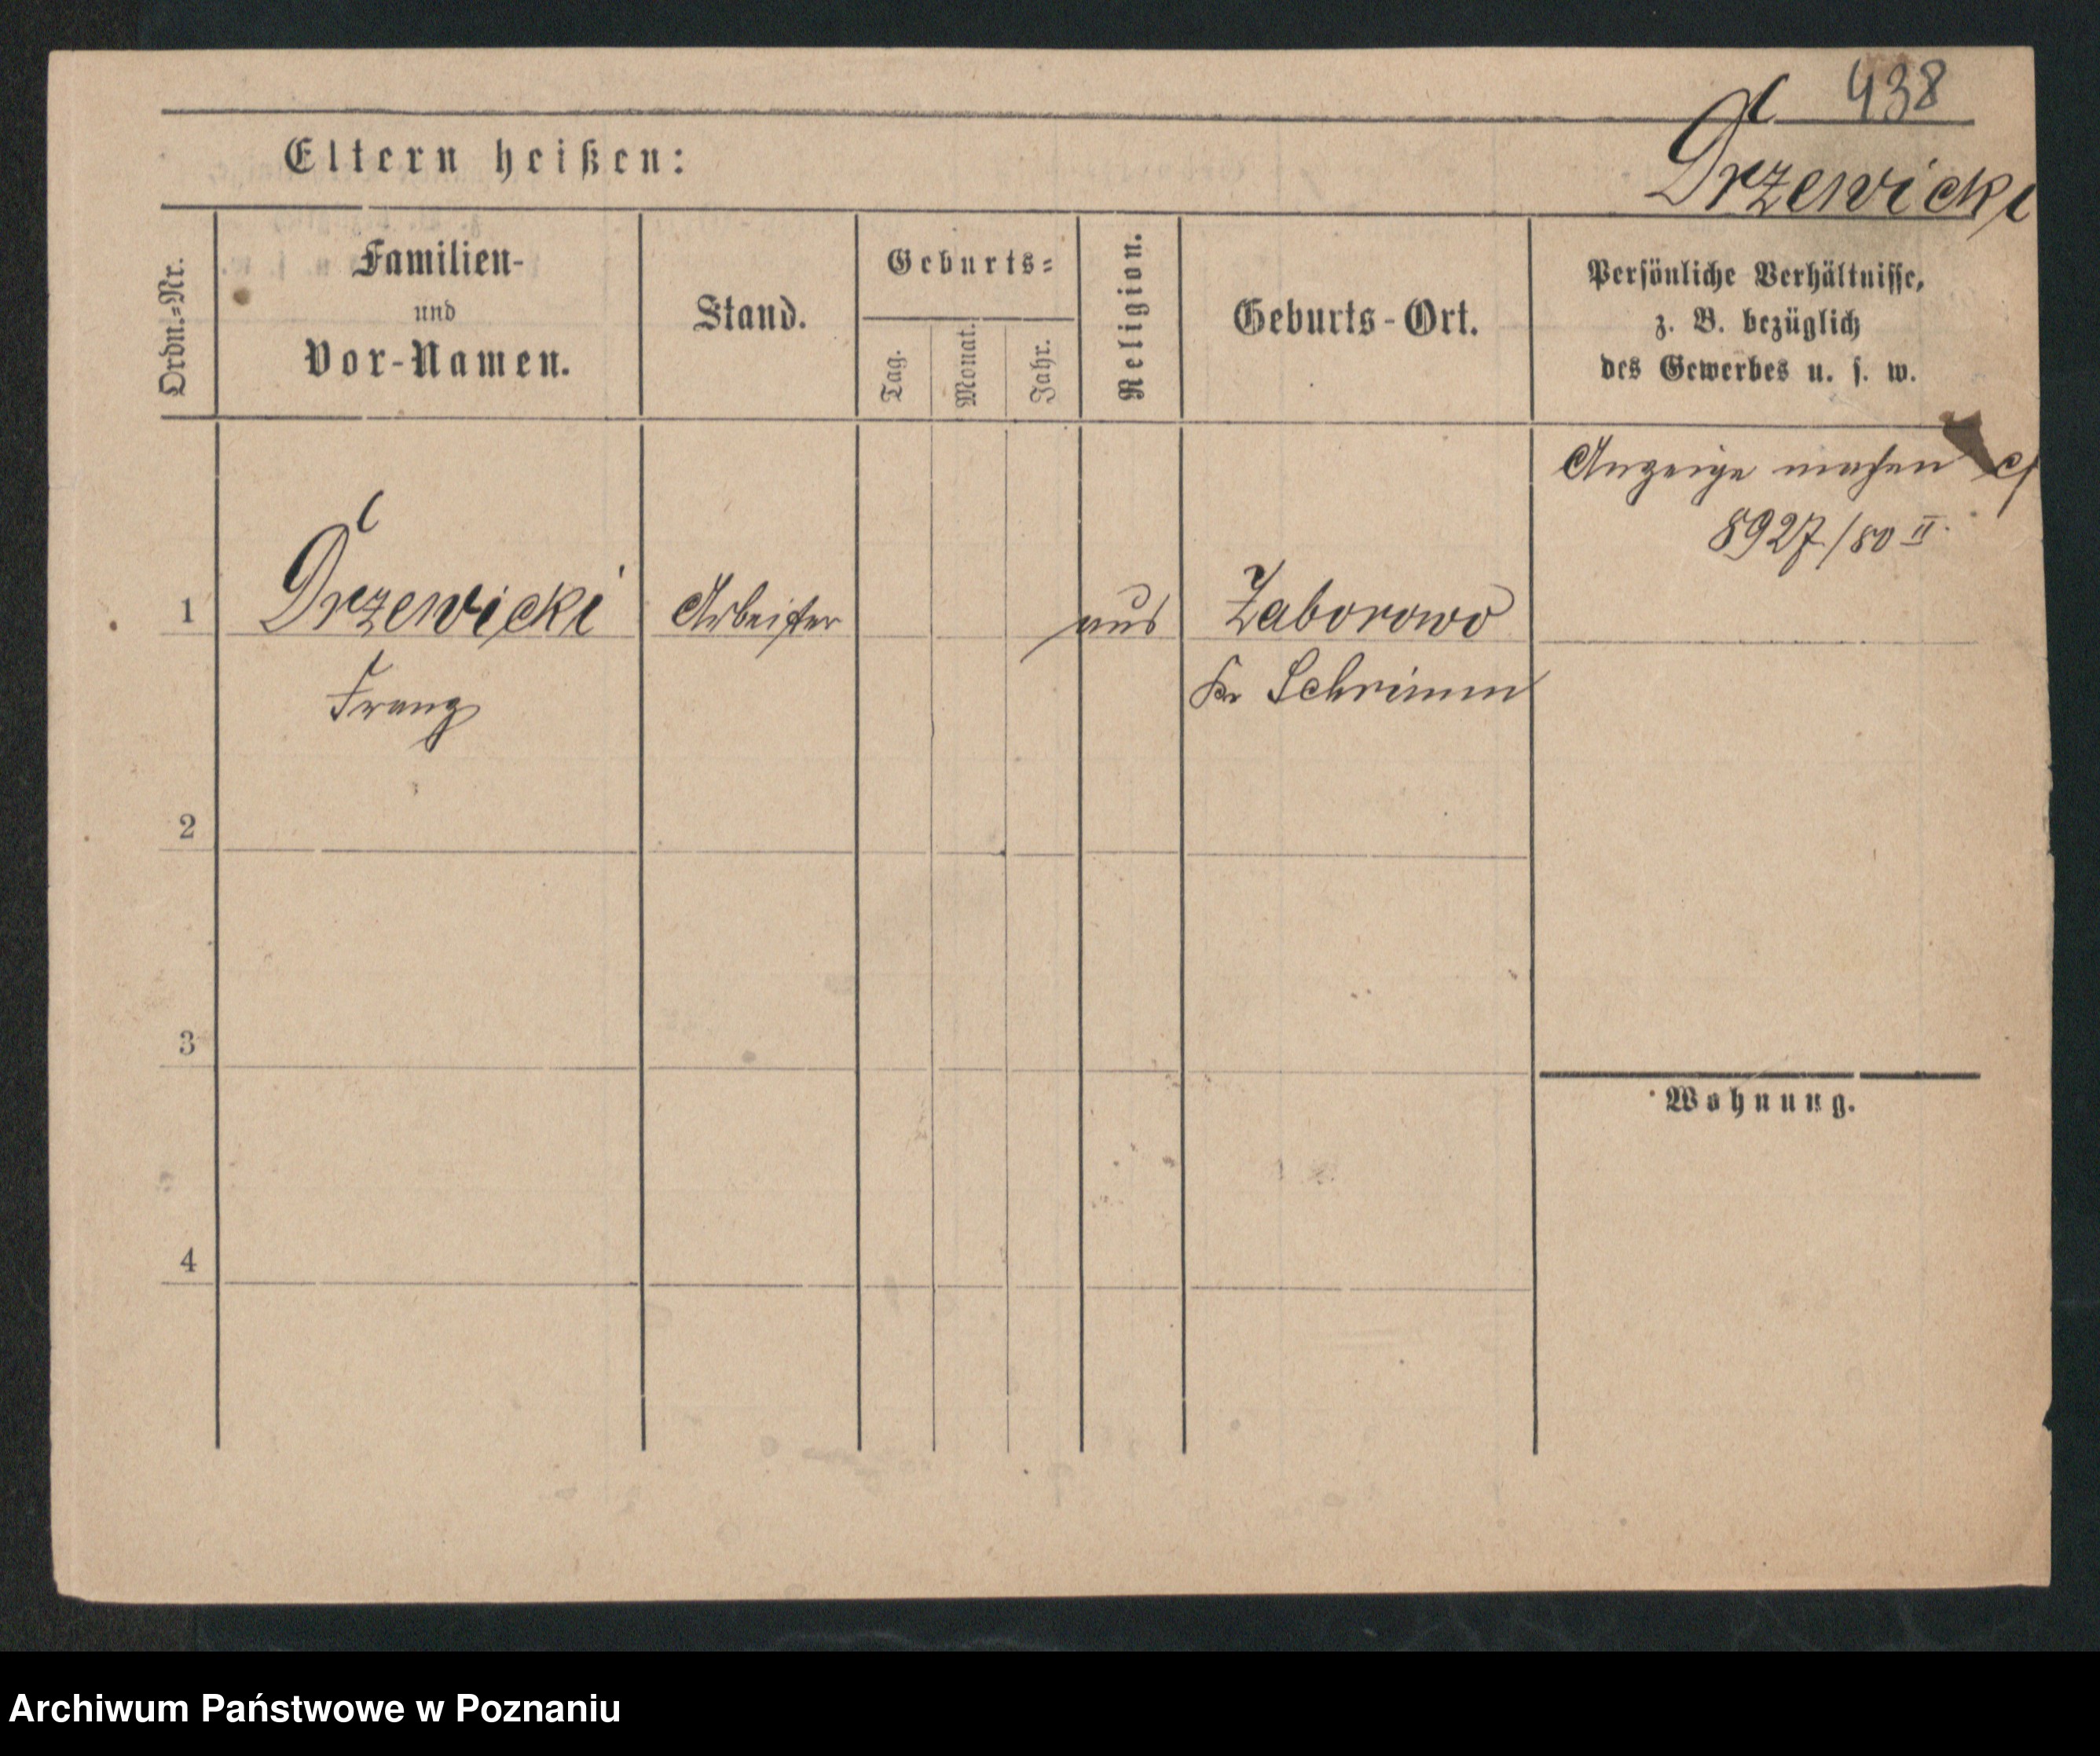 438
Drzewicki
Eltern heißen:
Ordn.-Nr.
Familien-
und
Vor-Namen.
Stand.
Geburts-
Tag.
Monat.
Jahr.
Religion.
Geburts-Ort.
Persönliche Verhältnisse,
z. B. bezüglich
des Gewerbes u. s. w.
Anzeige machen cf
8927/80 II.
1 Drzewicki Arbeiter aus Zaborowo
Franz Kr Schrimm
2
3
Wohnung.
4
Archiwum Państwowe w Poznaniu